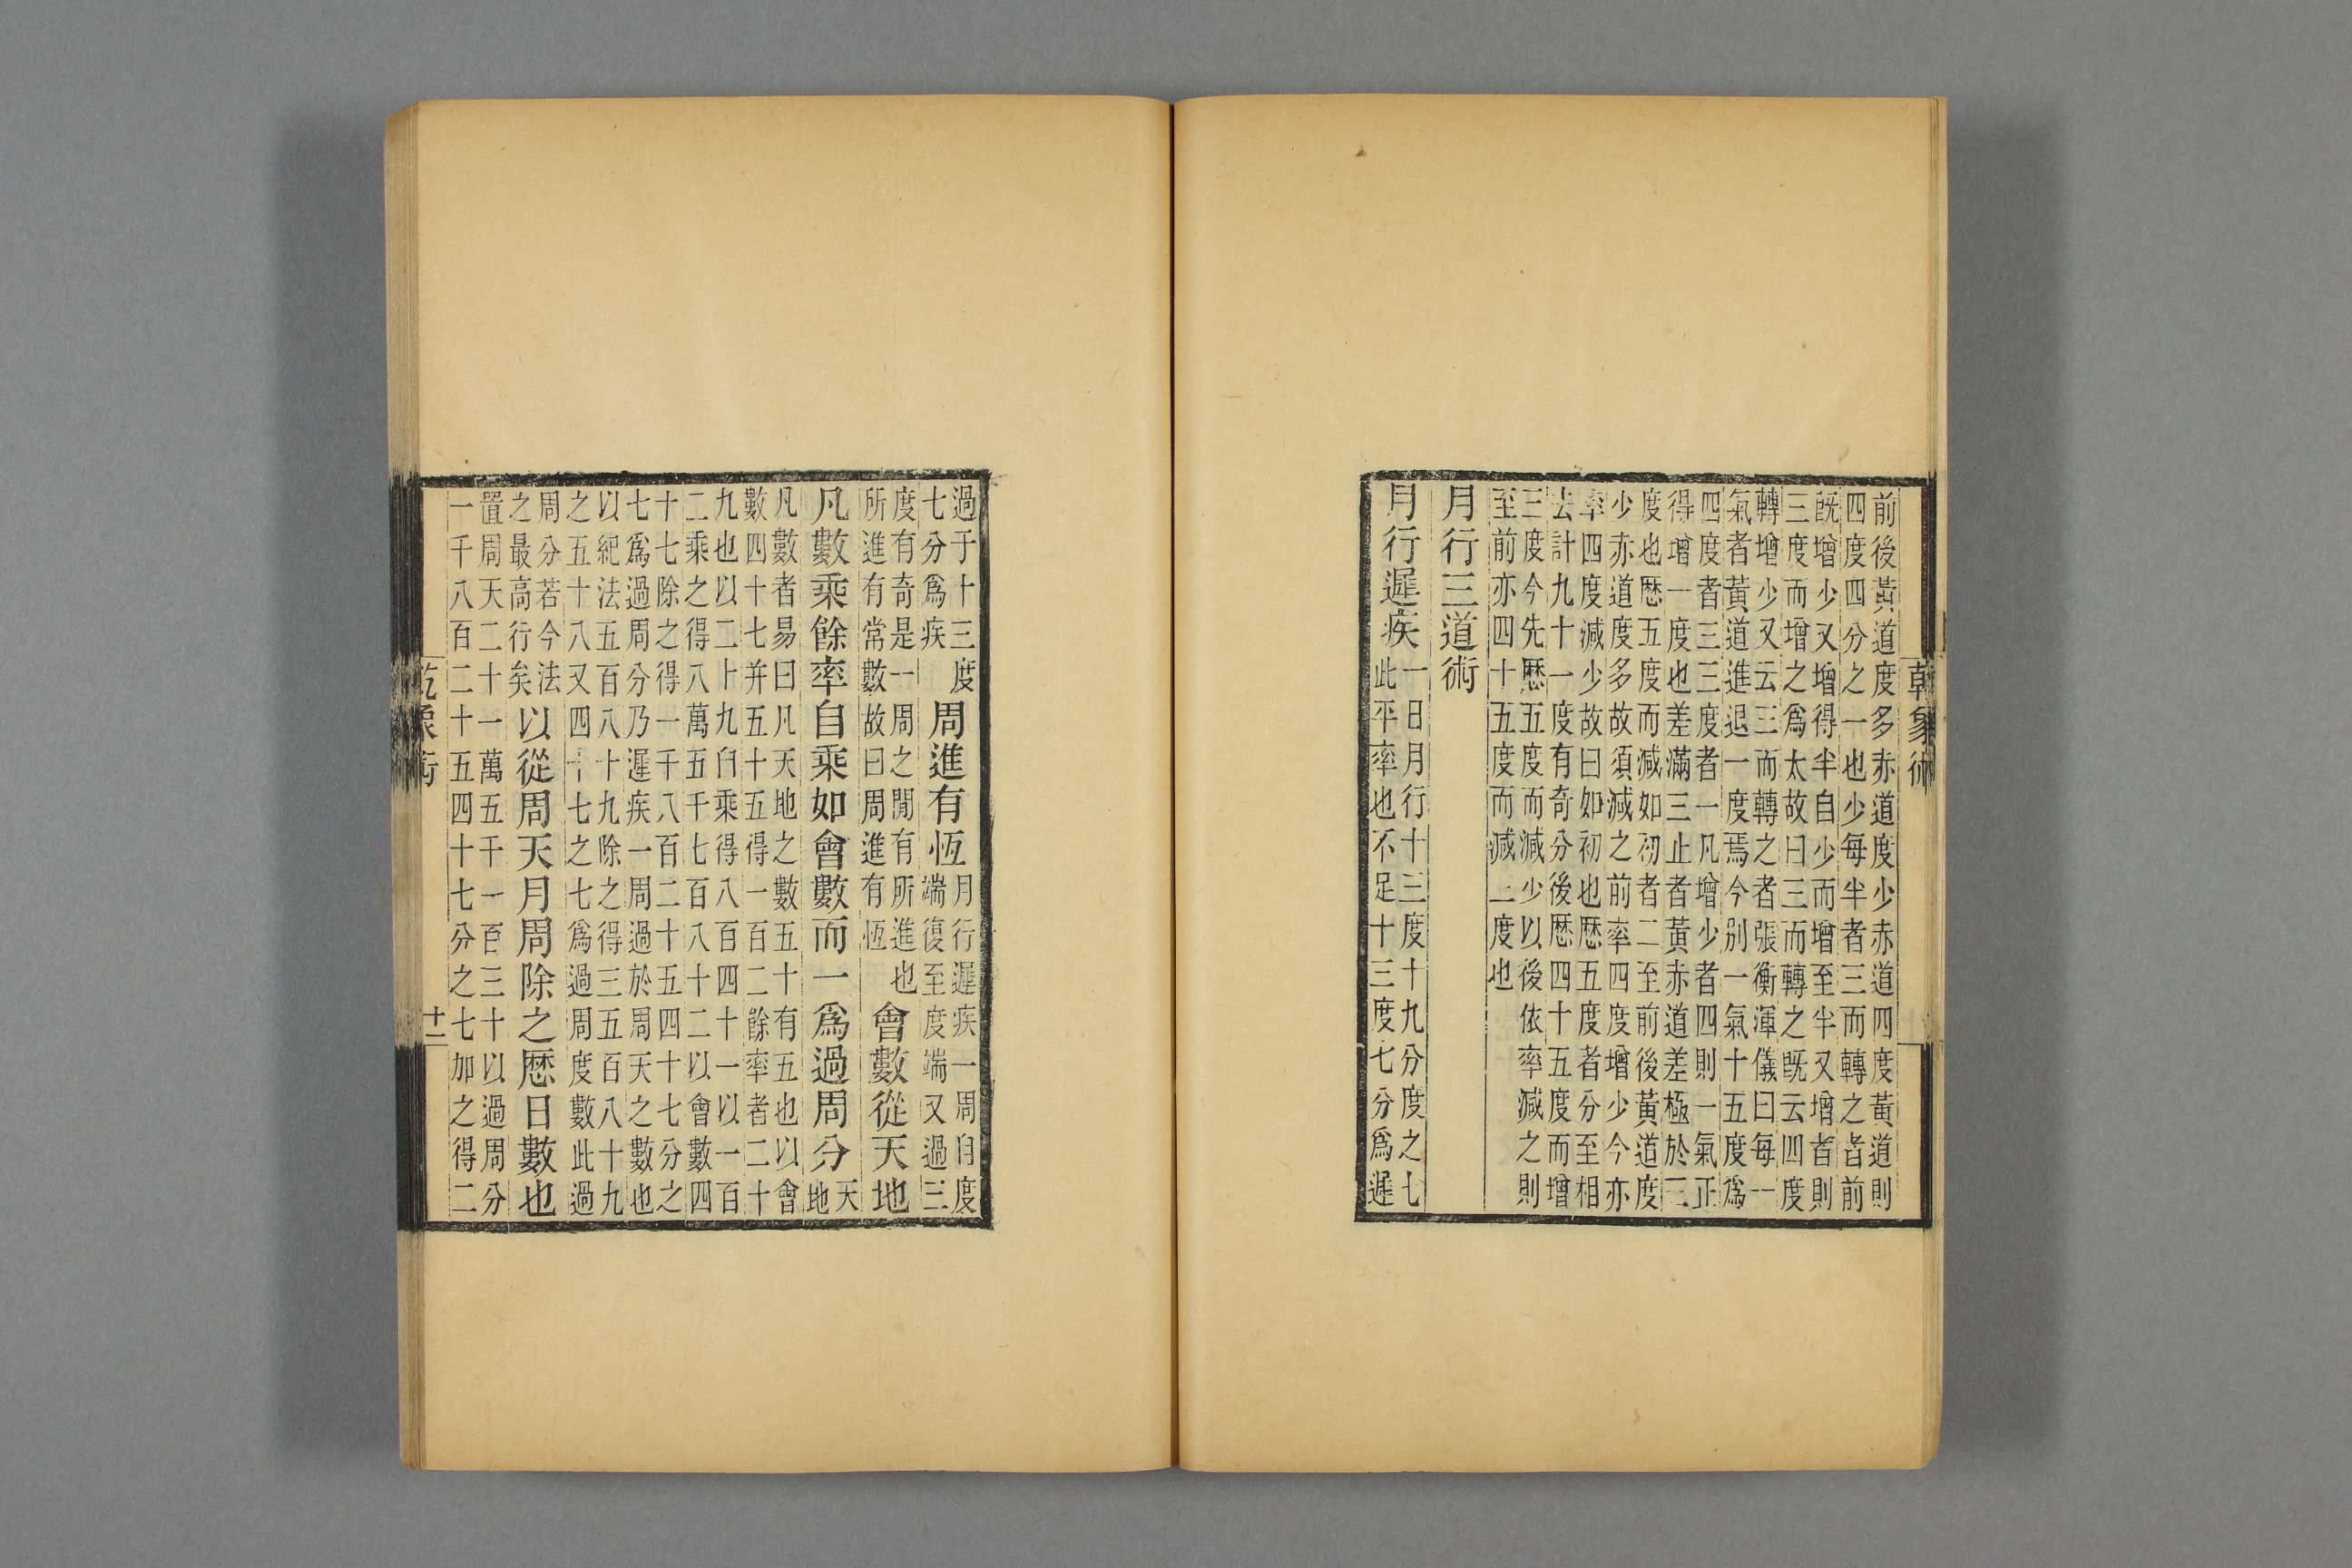 乾象術
前後黃道度多赤道度少赤道四度黃道則
四度四分之一也少每半者三而轉之者前
既增少又增得半自少而增至半又增者則
三度而增之爲太故曰三而轉之既云四度
轉增少又云三而轉之者張衡渾儀曰每一
氣者黃道進退一度焉今別一氣十五度爲
四度者三三度者一凡增少者四則一氣正
得增一度也差滿三止者黃赤道差極於三
度也厯五度而減如初者二至前後黃道度
少赤道度多故須減之前率四度增少今亦
率四度減少故曰如初也厯五度者分至相
去計九十一度有奇分後厯四十五度而增
三度今先厯五度而減少以後依率減之則
至前亦四十五度而減三度也
月行三道術
月行遲疾一日月行十三度十九分度之七
此平率也不足十三度七分爲遲
過于十三度
七分爲疾
周進有恆
月行遲疾一周自度
端復至度端又過三
度有奇是一周之閒有所進也
所進有常數故曰周進有恆
會數從天地
凡數乘餘率自乘如會數而一爲過周分
天
地
凡數者易曰凡天地之數五十有五也以會
數四十七并五十五得一百二餘率者二十
九也以二十九自乘得八百四十一以一百
二乘之得八萬五千七百八十二以會數四
十七除之得一千八百二十五四十七分之
七爲過周分乃遲疾一周過於周天之數也
以紀法五百八十九除之得三五百八十九
之五十八又四十七之七爲過周度數此過
周分若今法
之最高行矣
以從周天月周除之厯日數也
置周天二十一萬五千一百三十以過周分
一千八百二十五四十七分之七加之得二
乾象術
十二